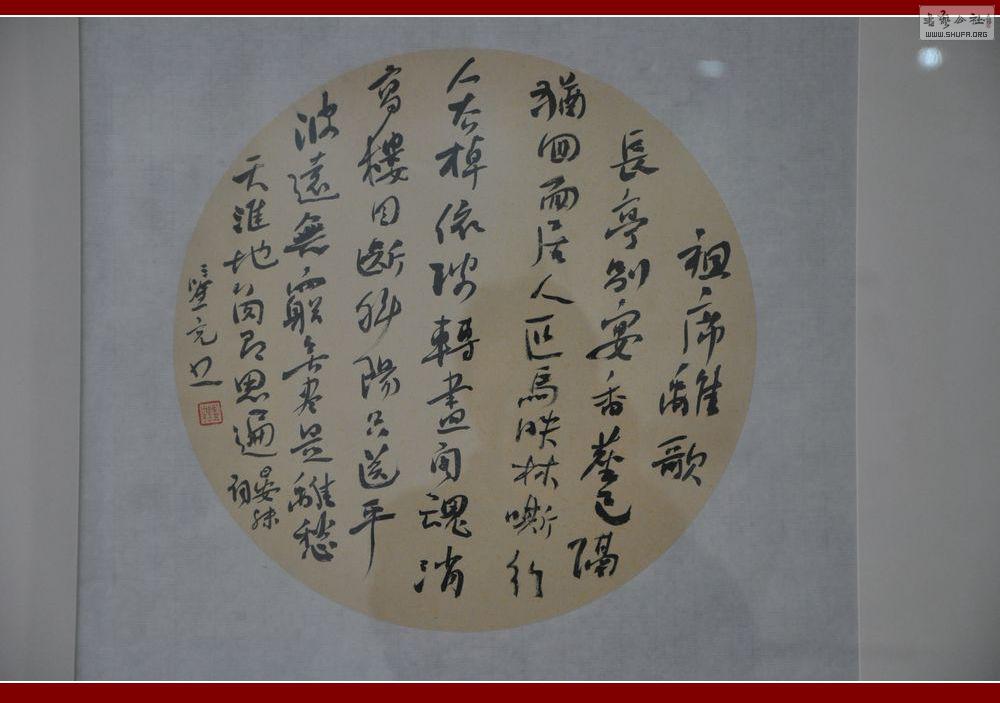 祖席離歌
長亭別宴香塵已隔
猶回面居人匹馬映林嘶行
人去棹依波轉畫閣魂消
高樓目斷斜陽只送平
波遠無窮無盡是離愁
天涯地角尋思遍
晏殊
詞
書藝公社
WWW.SHUFA.ORG